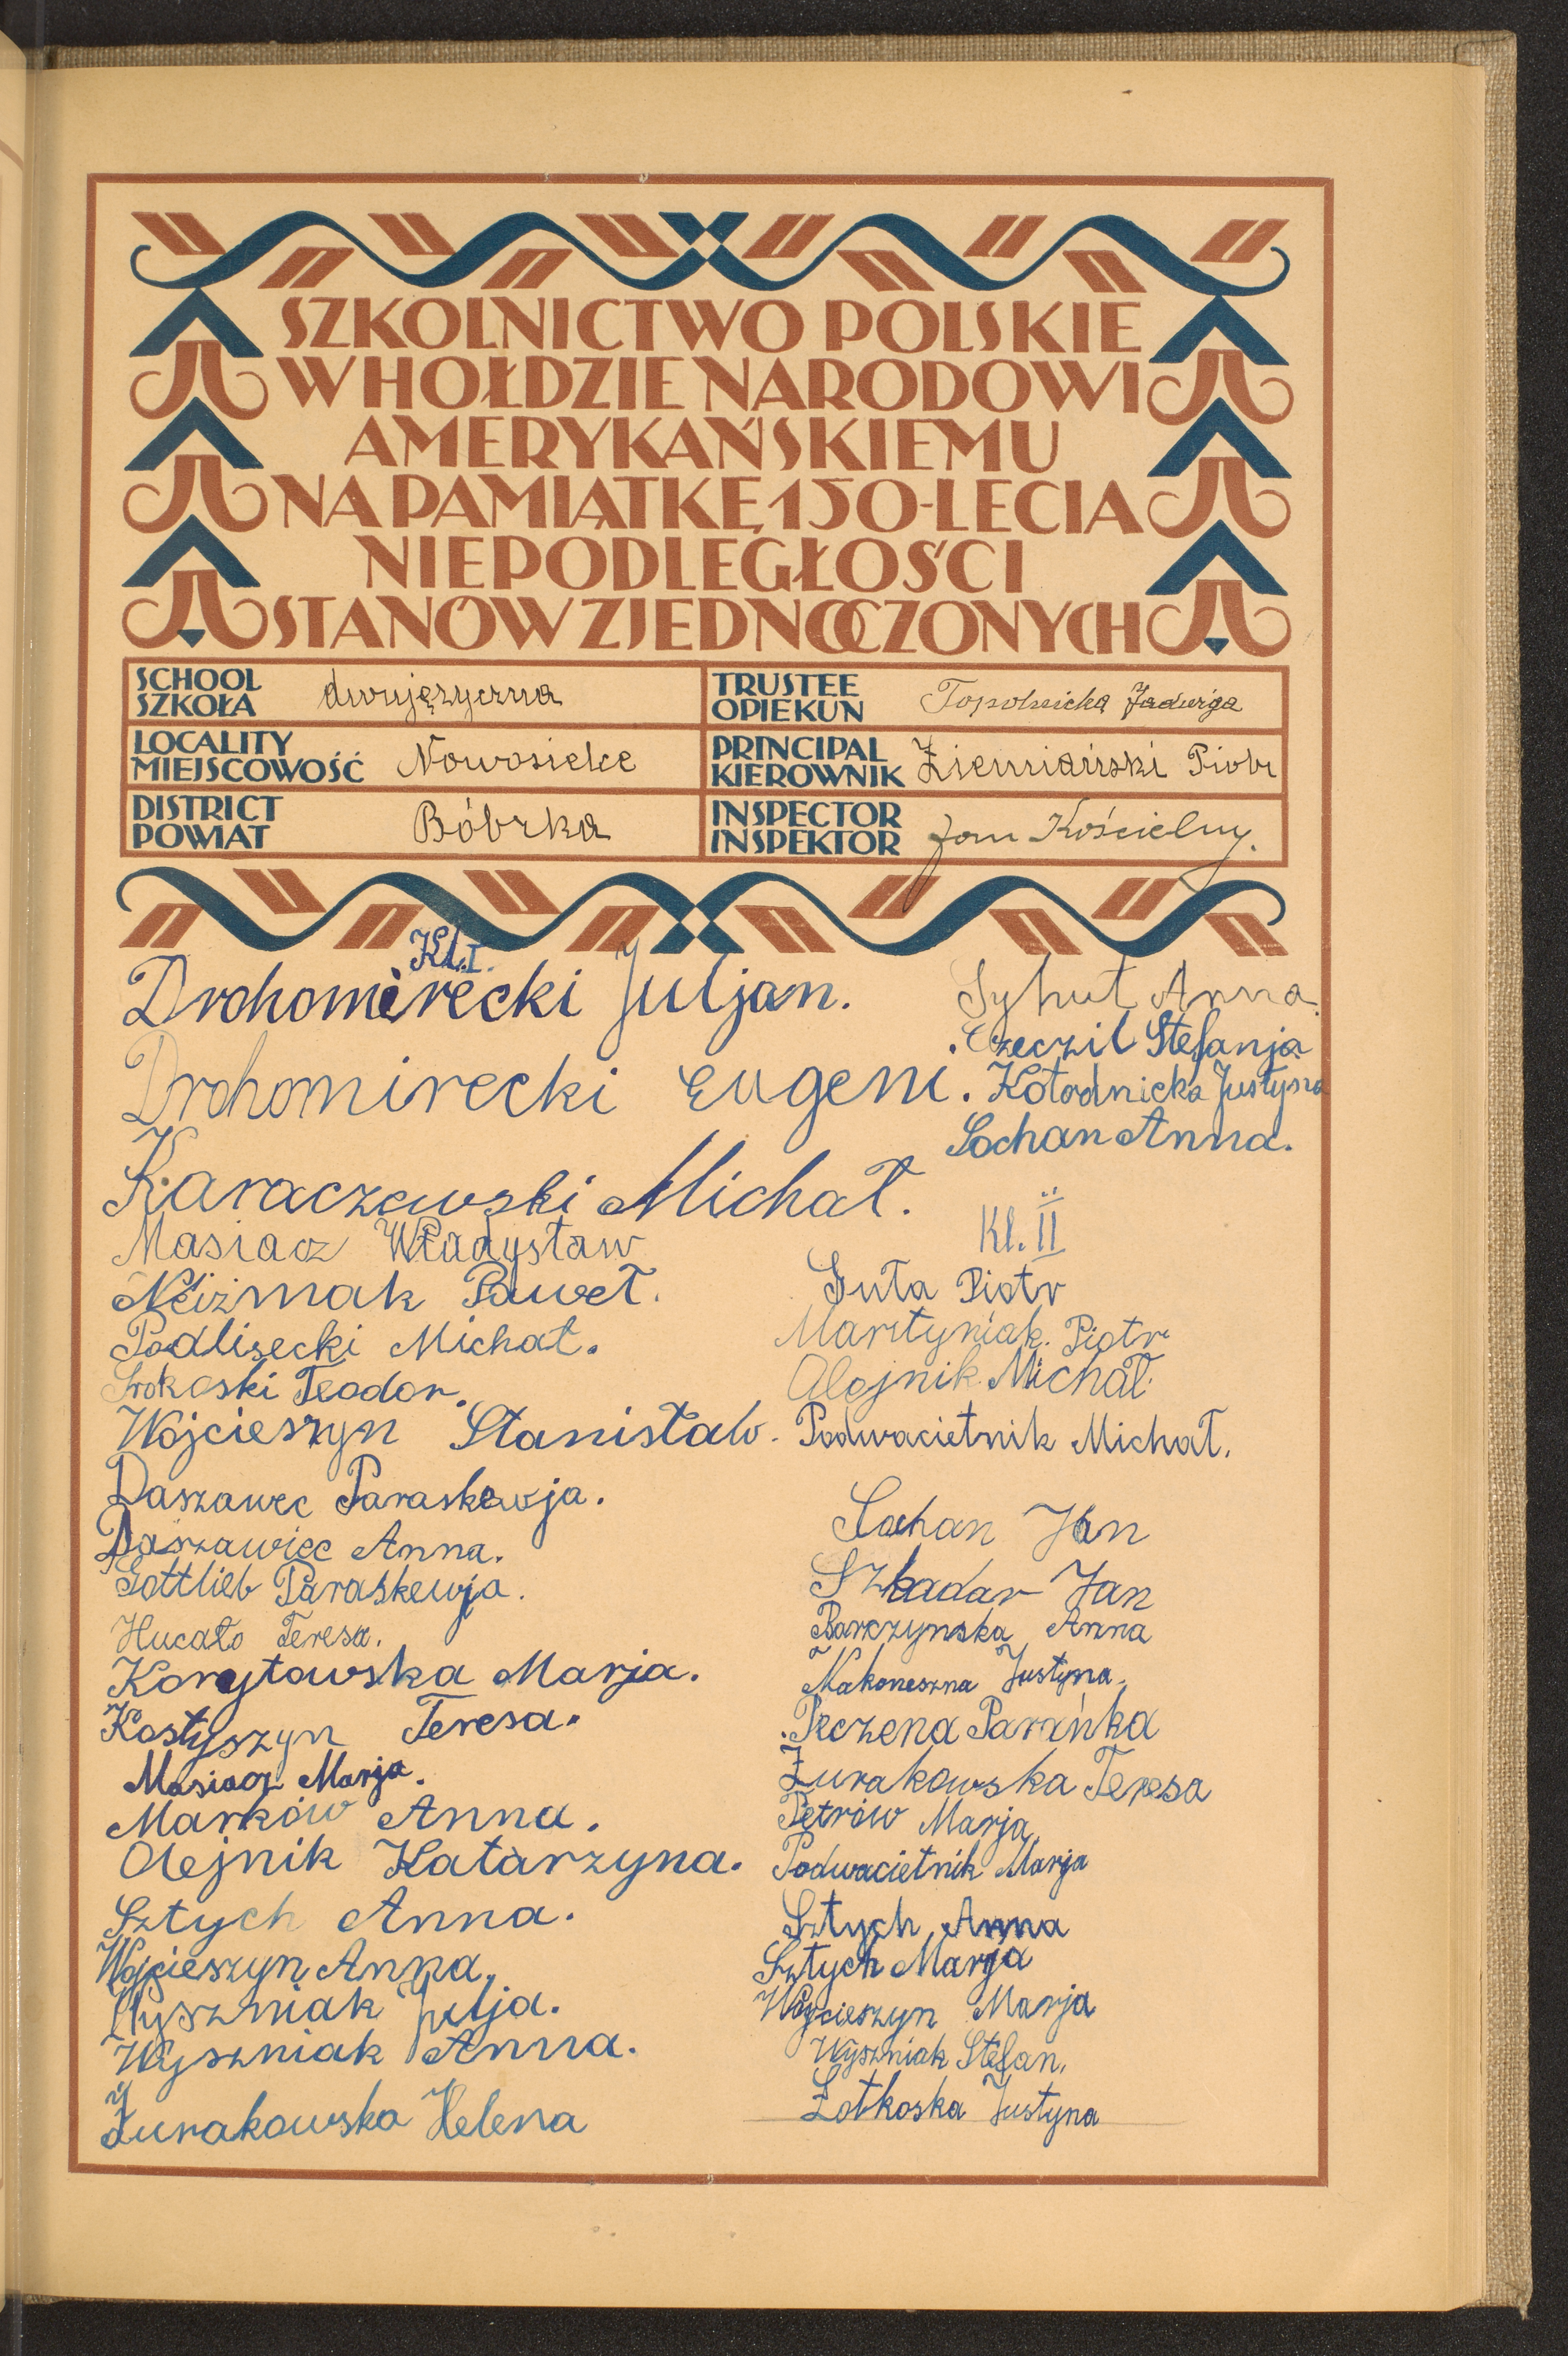 SZKOLNICTWO POLSKIE
W HOŁDZIE NARODOWI
AMERYKAŃSKIEMU
NA PAMIĄTKĘ 150-LECIA
NIEPODLEGŁOŚCI
STANÓW ZJEDNOCZONYCH
SCHOOL
SZKOŁA
dwujęzyczna
TRUSTEE
OPIEKUN
Topolnicka Jadwiga
LOCALITY
MIEJSCOWOŚĆ
Nowosielce
PRINCIPAL
KIEROWNIK
Ziemiański Piotr
DISTRICT
POWIAT
Bóbrka
INSPECTOR
INSPEKTOR
Jan Kościelny.
Kl. I.
Drohomirecki Juljan.
Drohomirecki Eugeni.
Karaczewski Michał.
Masiacz Władysław
Paweł.
Podlisecki Michał.
Srokoski Teodor.
Wojcieszyn Stanisław.
Daszawec Paraskewja.
Daszawiec Anna.
Gottlieb Paraskewja.
Hucało Teresa.
Korytowska Marja.
Kostyszyn Teresa.
Masiacz Marja.
Marków Anna.
Olejnik Katarzyna.
Sztych Anna.
Wojcieszyn Anna.
Wyszniak Julja.
Wyszniak Anna.
Żurakowska Helena
Syhut Anna.
Stefanja
Kołodnicka Justyna
Sochan Anna.
Kl. II
Guła Piotr
Martyniak Piotr
Olejnik Michał.
Podwacietnik Michał.
Sochan Jan
Szkadar Jan
Barczynska Anna
Nakoneszna Justyna.
Peczena Parańka
Żurakowska Teresa
Petrów Marja.
Podwacietnik Marja
Sztych Anna
Sztych Marja
Wojcieszyn Marja
Wyszniak Stefan.
Żołkoska Justyna